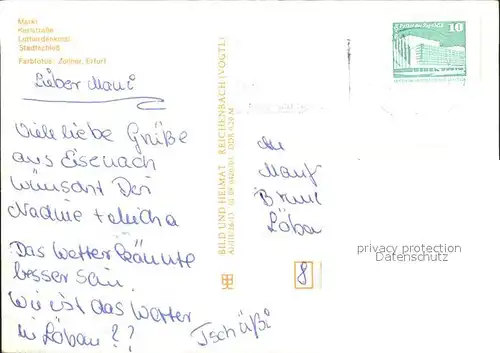 Markt
Karlstraße
Lutherdenkmal
Stadtschloß
Farbfotos: Zorner, Erfurt
Lieber Mani
Viele liebe Grüße
aus Eisenach
wünscht Dir
Nadine + Micha
Das Wetter könnte
besser sein.
Wie ist das Wetter
in Löbau??
Tschüßi
BILD UND HEIMAT REICHENBACH (VOGTL)
10
an
Löbau
8
privacy protection
Datenschutz